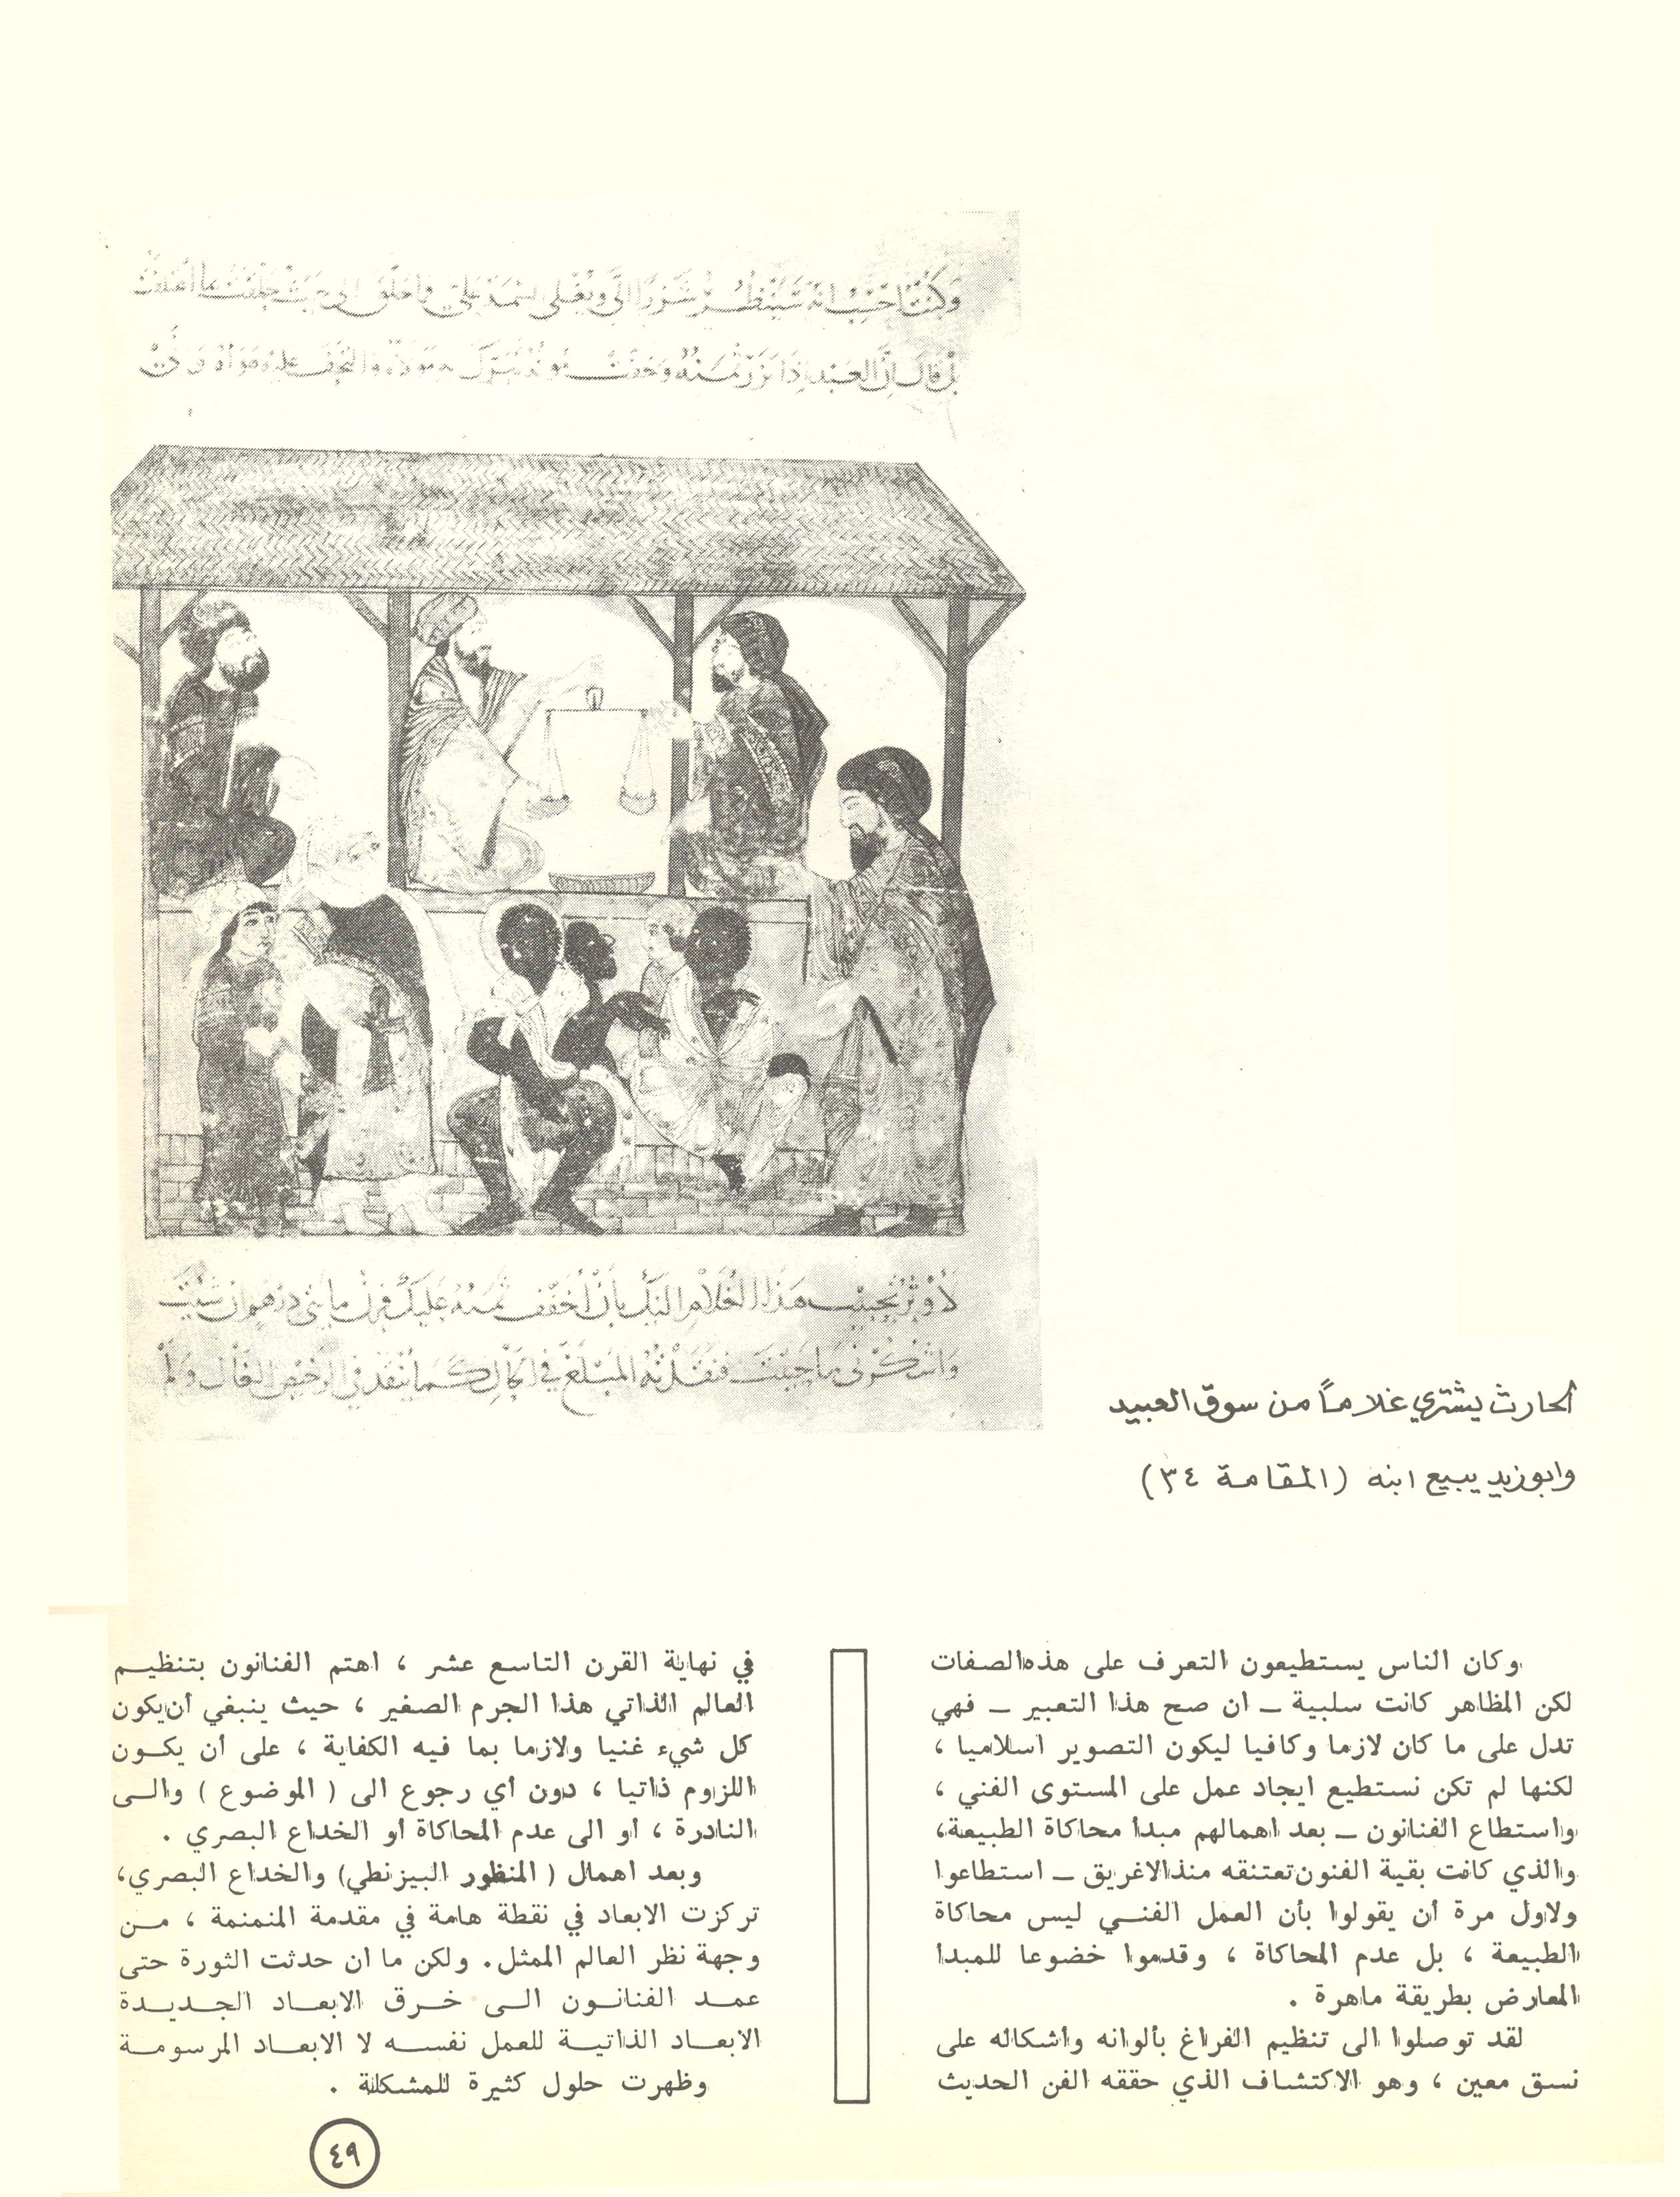 وكنت احسب انه سينظر شزرا الي ويغلي السيمة علي
بل قال إن العبد إذا نزر ثمنه وخفت مؤنه تبرك به مولاه والتحف عليه هواه
لأوثر تحبيب هذا الغلام إليك بأن أخفف ثمنه عليك فزن مايتي درهم إن شئت
واشكرني ما حييت فنقدته المبلغ في الحال كما ينقد في الرخيص الغال ولم
الحارث يشتري غلاماً من سوق العبيد
وابو زيد يبيع ابنه (المقامة ٣٤)
وكان الناس يستطيعون التعرف على هذه الصفات
لكن المظاهر كانت سلبية ــ ان صح هذا التعبير ــ فهي
تدل على ما كان لازما وكافيا ليكون التصوير اسلاميا ،
لكنها لم تكن نستطيع ايجاد عمل على المستوى الفني ،
واستطاع الفنانون ــ بعد اهمالهم مبدأ محاكاة الطبيعة،
والذي كانت بقية الفنون تعتنقه منذ الاغريق ــ استطاعوا
ولاول مرة أن يقولوا بأن العمل الفنـي ليس محاكاة
الطبيعة ، بل عدم المحاكاة ، وقدموا خضوعا للمبدا
المعارض بطريقة ماهرة .
لقد توصلوا الى تنظيم الفراغ بألوانه وأشكاله على
نسق معين ، وهو الاكتشاف الذي حققه الفن الحديث
في نهاية القرن التاسع عشر ، اهتم الفنانون بتنظيـم
العالم الذاتي هذا الجرم الصغير ، حيث ينبغي أن يكون
كل شيء غنيا ولازما بما فيه الكفاية ، على أن يكـون
اللزوم ذاتيا ، دون أي رجوع الى ( الموضوع ) والـى
النادرة ، أو الى عدم المحاكاة أو الخداع البصري .
وبعد اهمال ( المنظور البيزنطي) والخداع البصري،
تركزت الابعاد في نقطة هامة في مقدمة المنمنمة ، مـن
وجهة نظر العالم الممثل. ولكن ما ان حدثت الثورة حتى
عمـد الفنانـون الـى خـرق الابعـاد الجـديـدة
الابعـاد الذاتيـة للعمل نفسـه لا الابعـاد المرسومـة
وظهرت حلول كثيرة للمشكلة .
٤٩